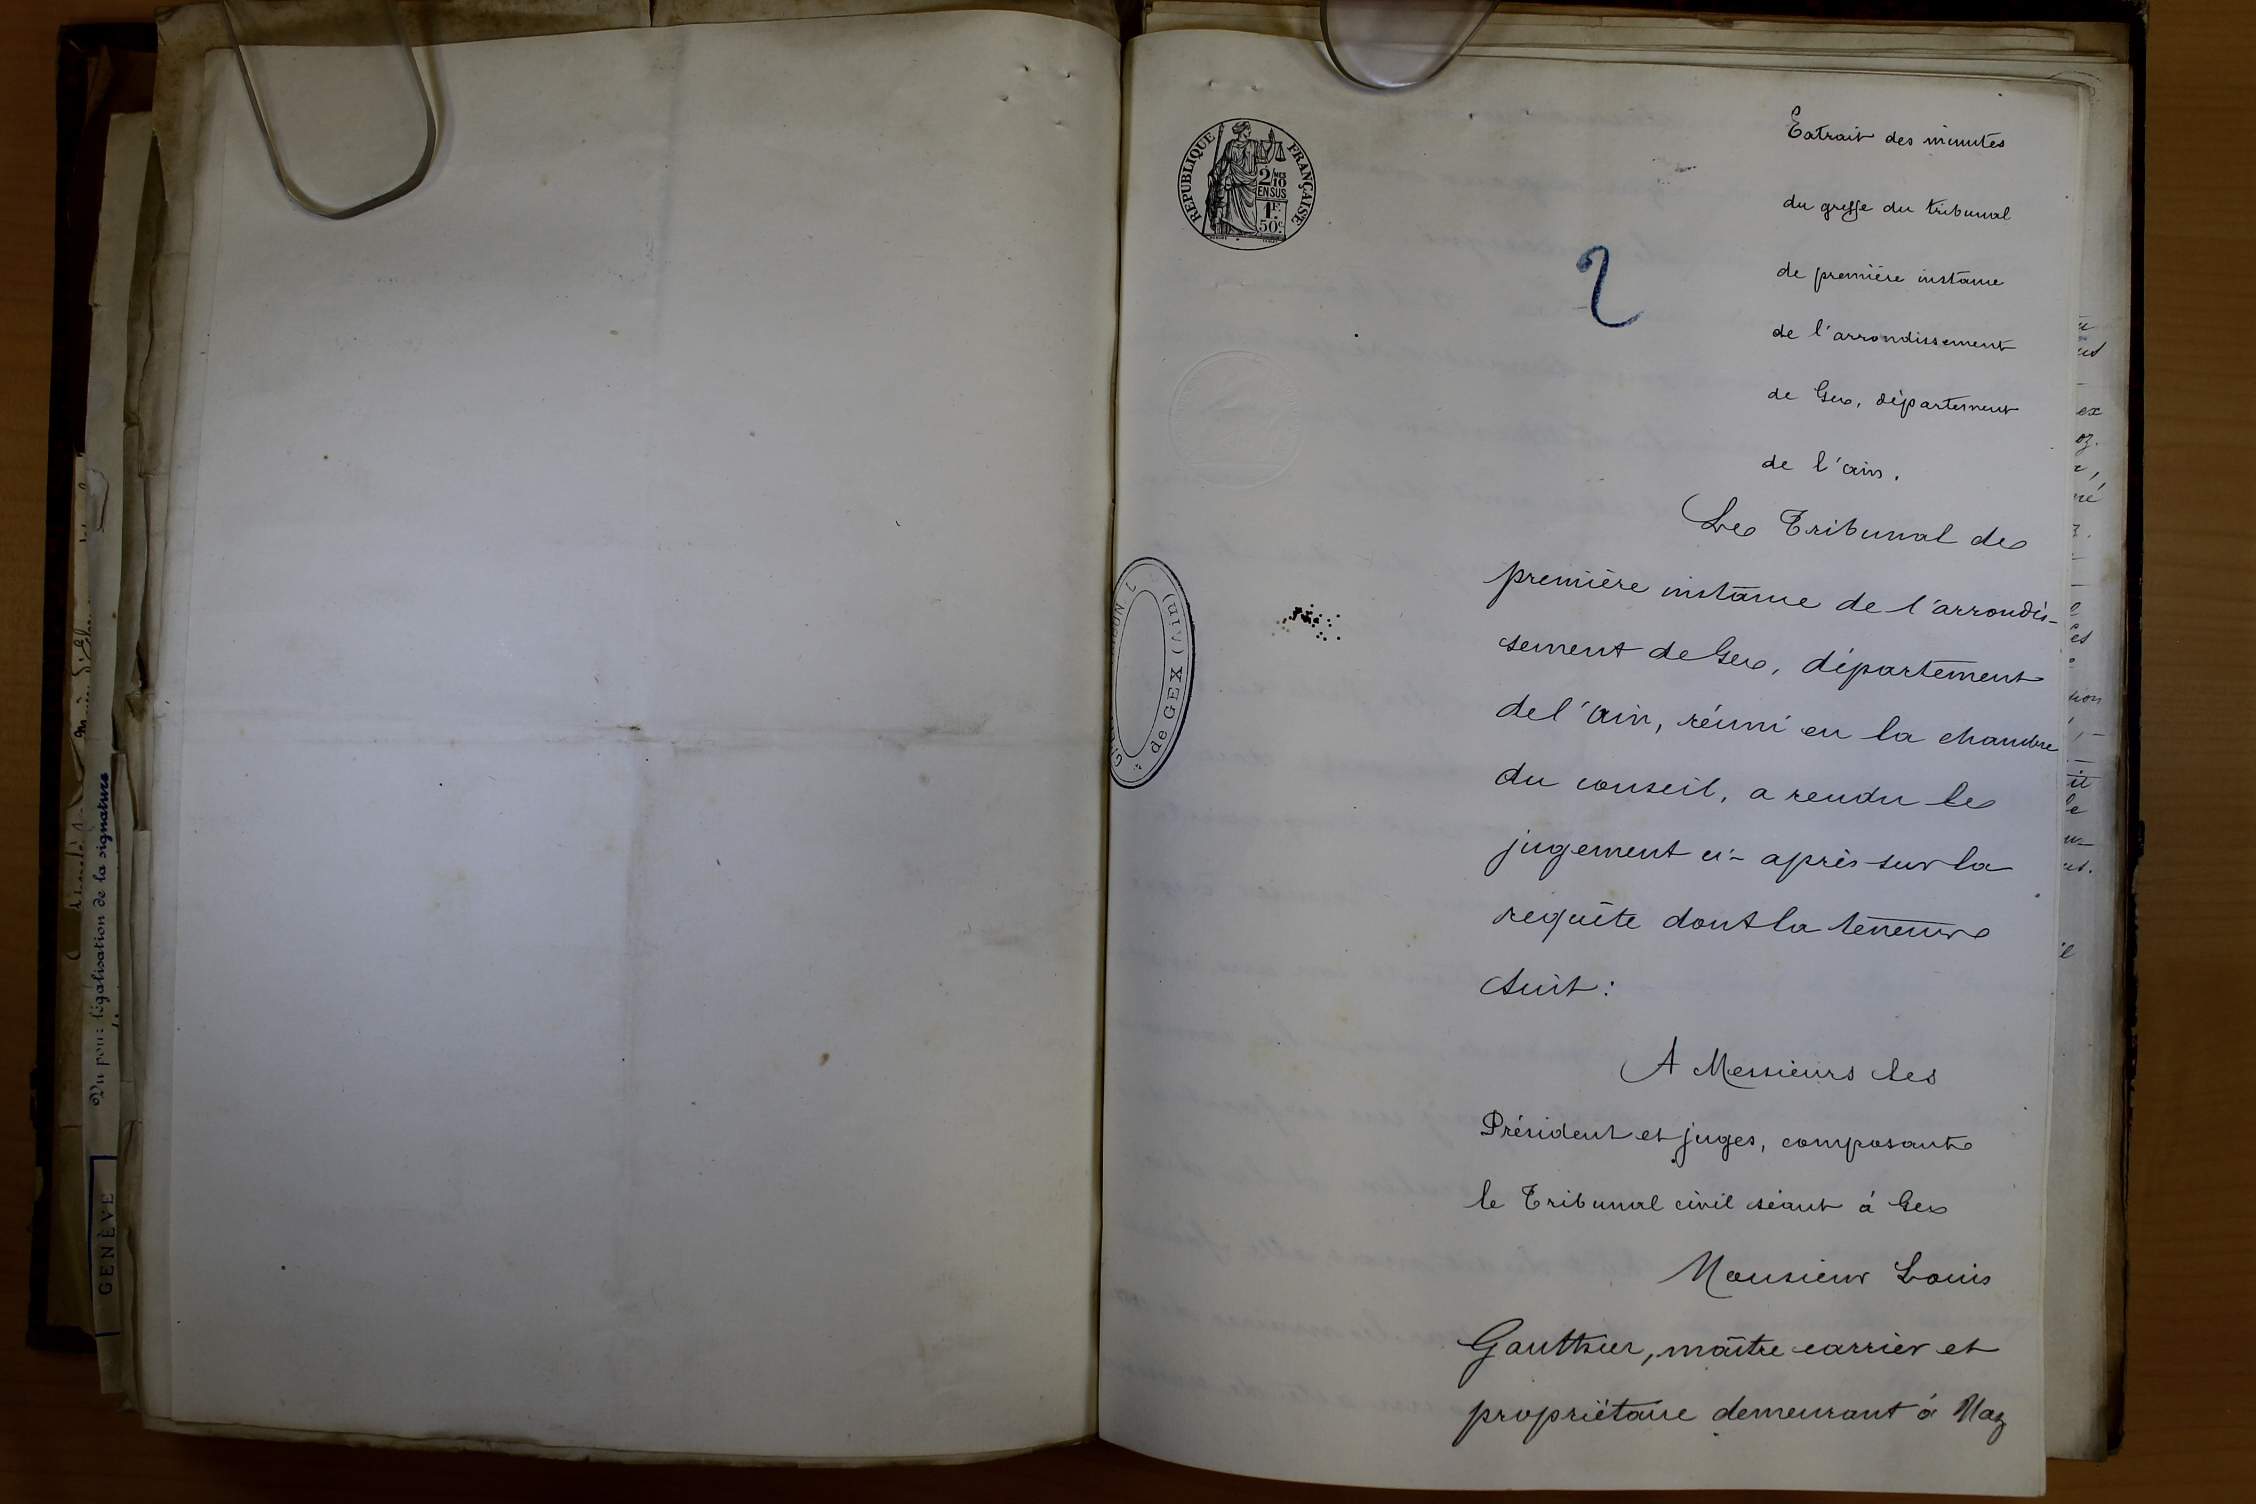 Vu pour légalisation de la signature
GENÈVE
RÉPUBLIQUE FRANÇAISE
2/10 MES
EN SUS
1F.
50c.
2
Extrait des minutes
du greffe du tribunal
de première instance
de l'arrondissement
de Gex, département
de l'ain.
de GEX (Ain)
Le Tribunal de
première instance de l'arrondis-
sement de Gex, département
de l'Ain, réuni en la chambre
du conseil, a rendu le
jugement ci-après sur la
requête dont la teneur
suit :
A Messieurs les
Président et juges, composant
le Tribunal civil séant à Gex
Monsieur Louis
Gauthier, maître carrier et
propriétaire demeurant à Naz